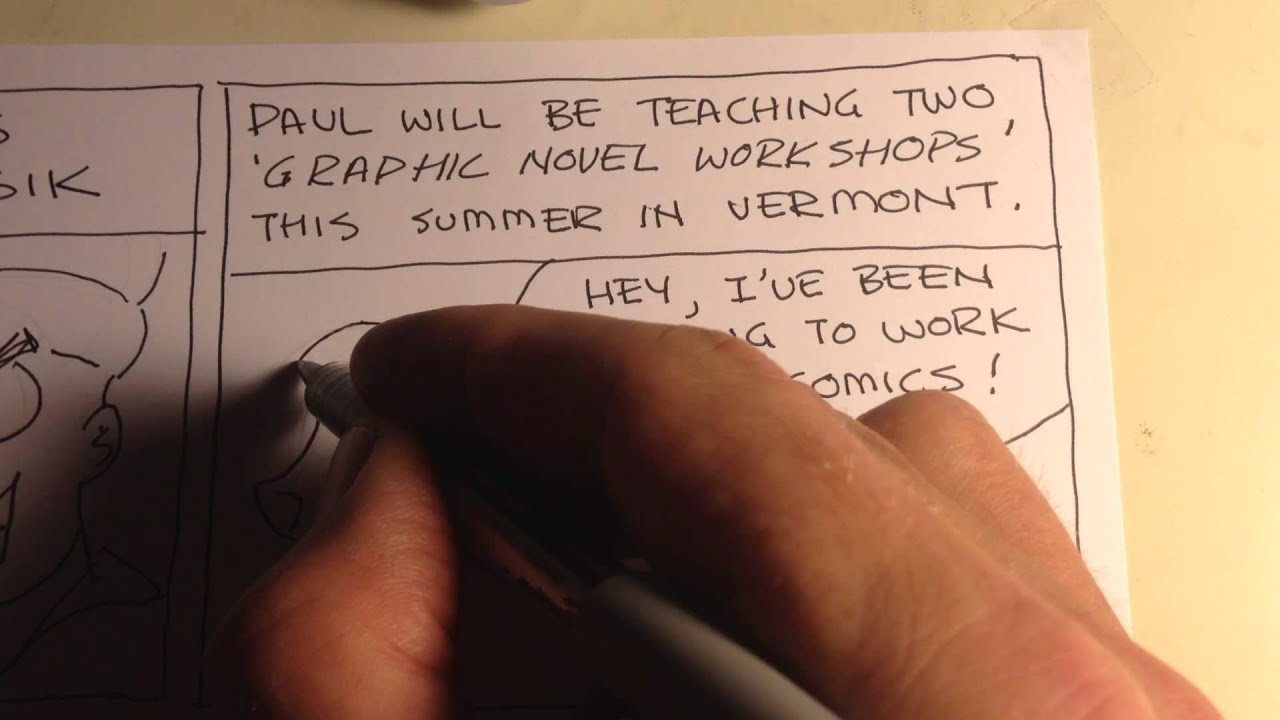 PAUL WILL BE TEACHING TWO
'GRAPHIC NOVEL WORKSHOPS'
THIS SUMMER IN VERMONT.
HEY, I'VE BEEN
TO WORK
COMICS!